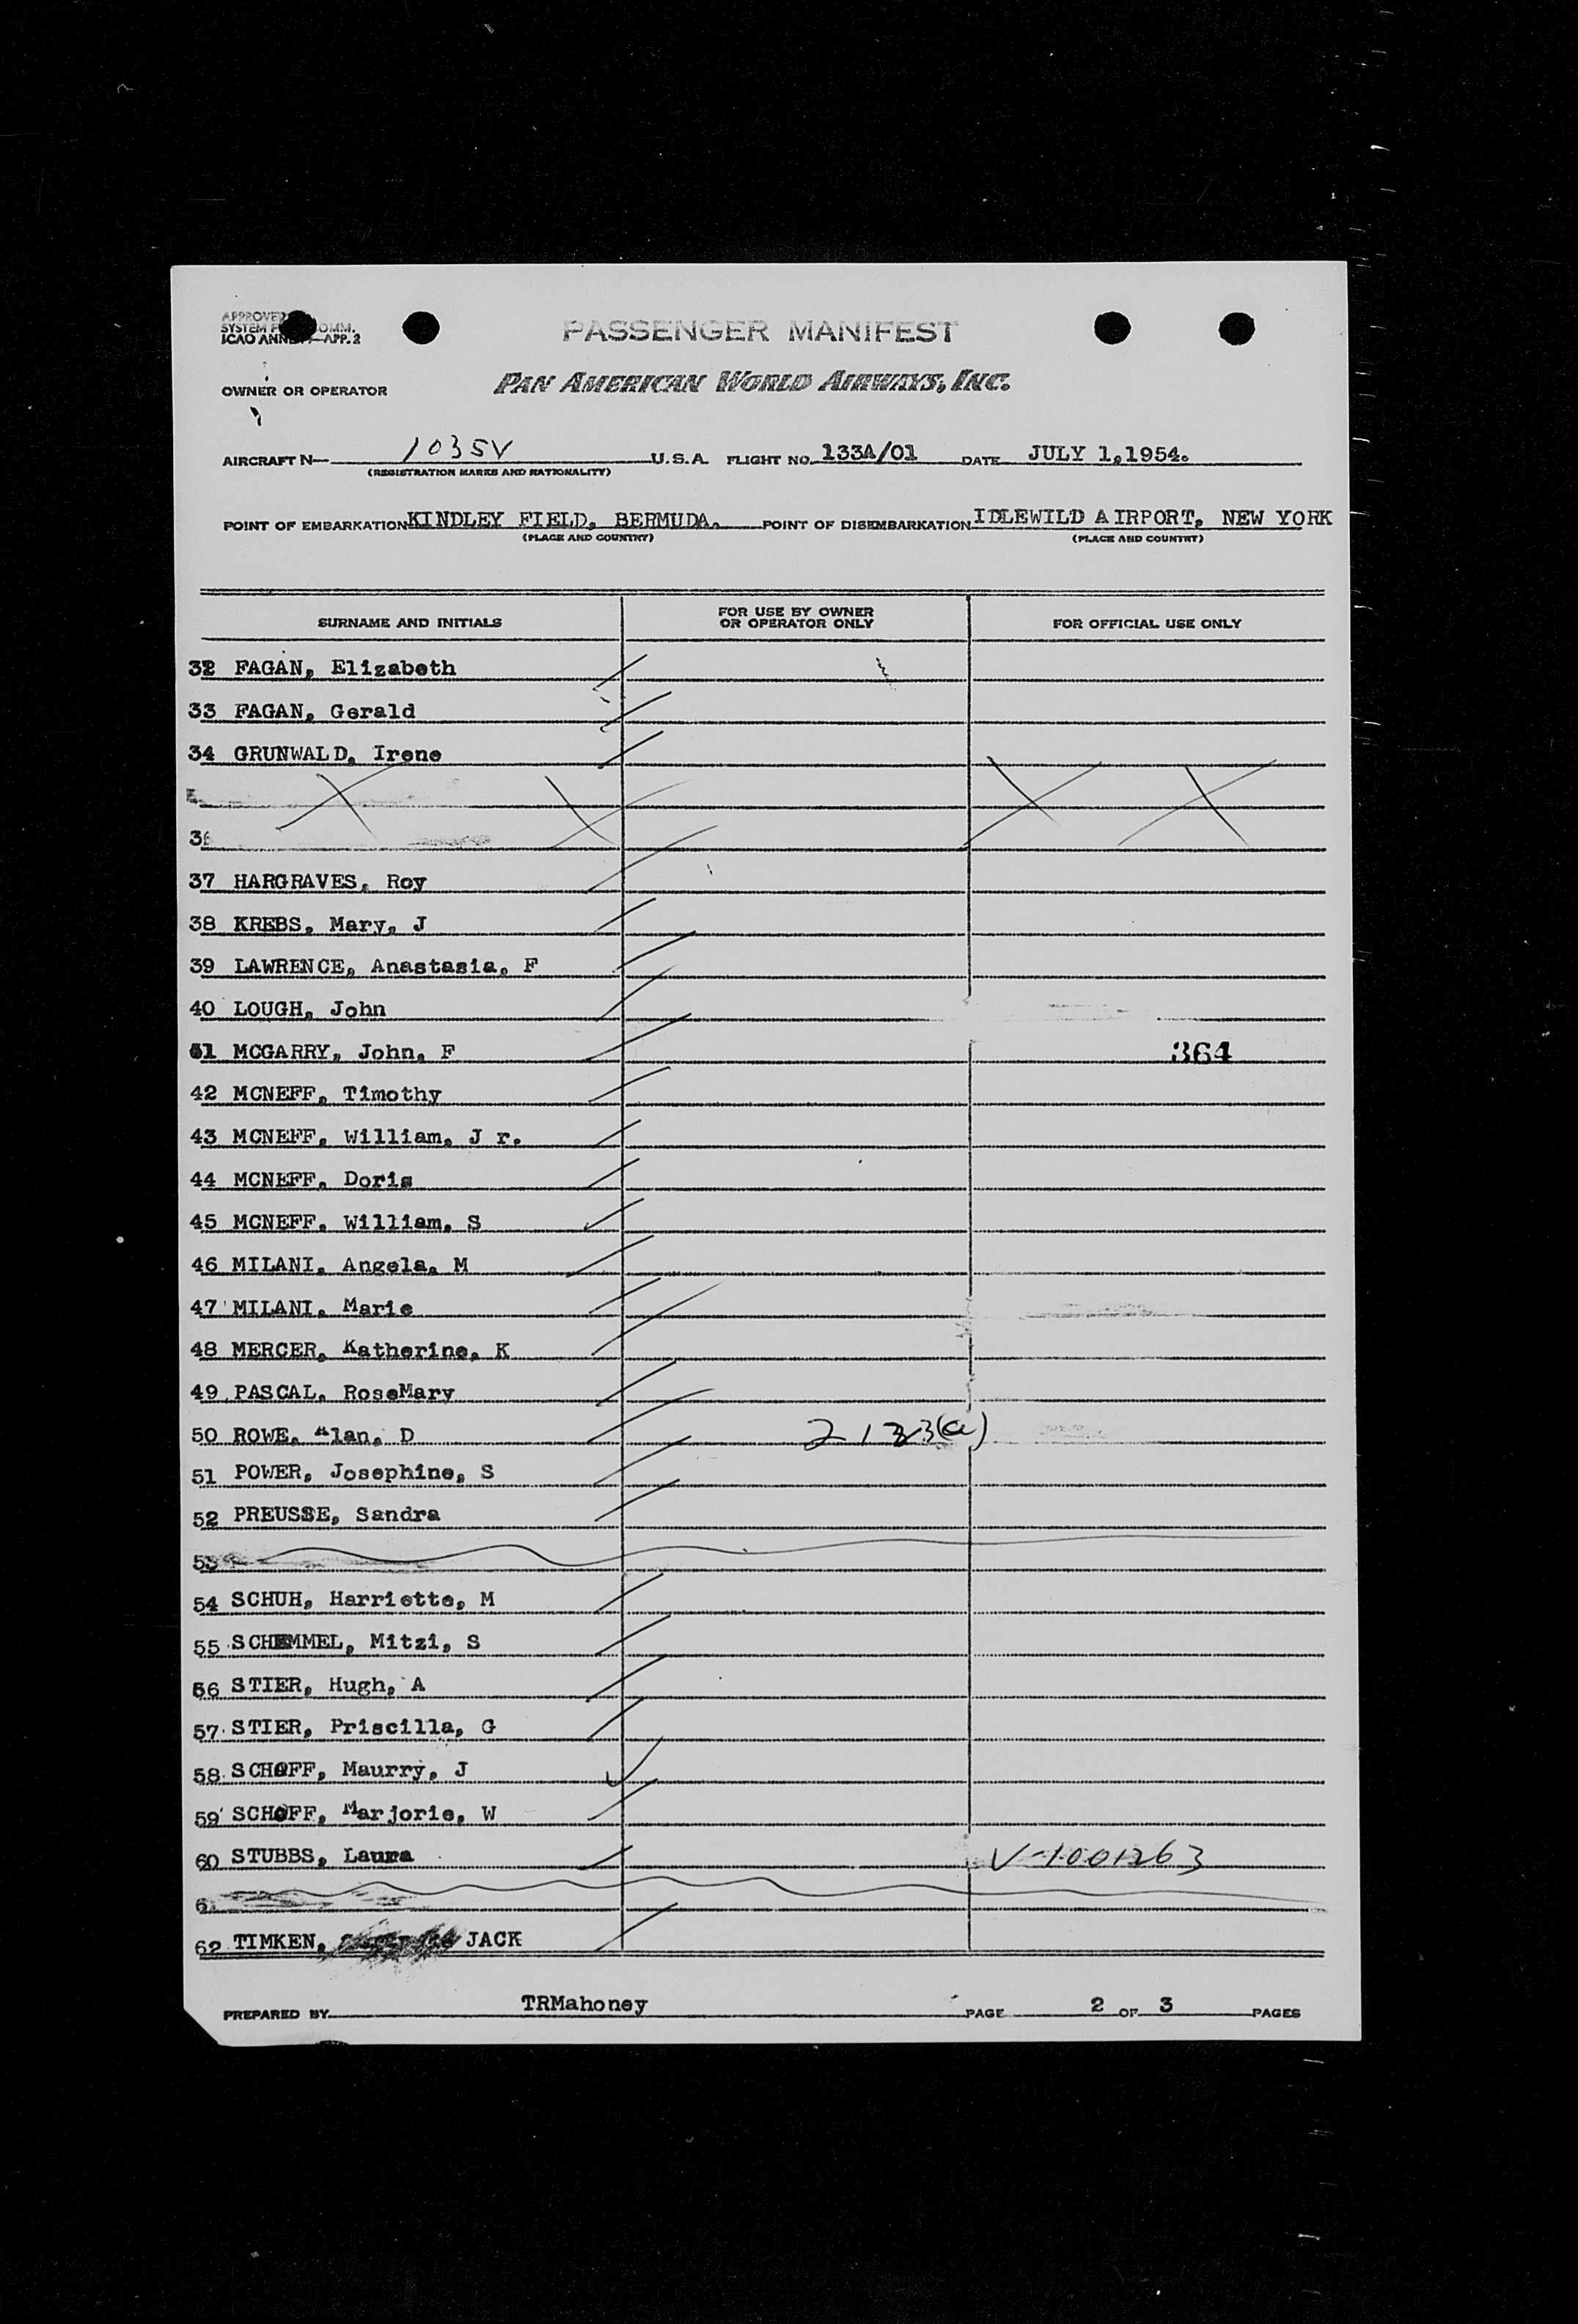 APPROVED
SYSTEM F COMM.
ICAO ANNE —APP. 2
PASSENGER MANIFEST
OWNER OR OPERATOR PAN AMERICAN WORLD AIRWAYS, INC.
AIRCRAFT N— 1035V U.S.A. FLIGHT NO. 133A/01 DATE JULY 1,1954.
(REGISTRATION MARKS AND NATIONALITY)
POINT OF EMBARKATION KINDLEY FIELD, BERMUDA. POINT OF DISEMBARKATION IDLEWILD AIRPORT, NEW YORK
(PLACE AND COUNTRY) (PLACE AND COUNTRY)
SURNAME AND INITIALS FOR USE BY OWNER OR OPERATOR ONLY FOR OFFICIAL USE ONLY
32 FAGAN, Elizabeth
33 FAGAN, Gerald
34 GRUNWALD, Irene
36
37 HARGRAVES, Roy
38 KREBS, Mary, J
39 LAWRENCE, Anastasia, F
40 LOUGH, John
41 MCGARRY, John, F 364
42 MCNEFF, Timothy
43 MCNEFF, William, J r.
44 MCNEFF, Doris
45 MCNEFF, William, S
46 MILANI, Angela, M
47 MILANI, Marie
48 MERCER, Katherine, K
49 PASCAL, RoseMary
50 ROWE, Alan, D 2123(a)
51 POWER, Josephine, S
52 PREUSSE, Sandra
53
54 SCHUH, Harriette, M
55 SCHEMMEL, Mitzi, S
56 STIER, Hugh, A
57 STIER, Priscilla, G
58 SCHOFF, Maurry, J
59 SCHOFF, Marjorie, W
60 STUBBS, Laura V-1001263
62 TIMKEN, JACK
PREPARED BY TRMahoney PAGE 2 OF 3 PAGES